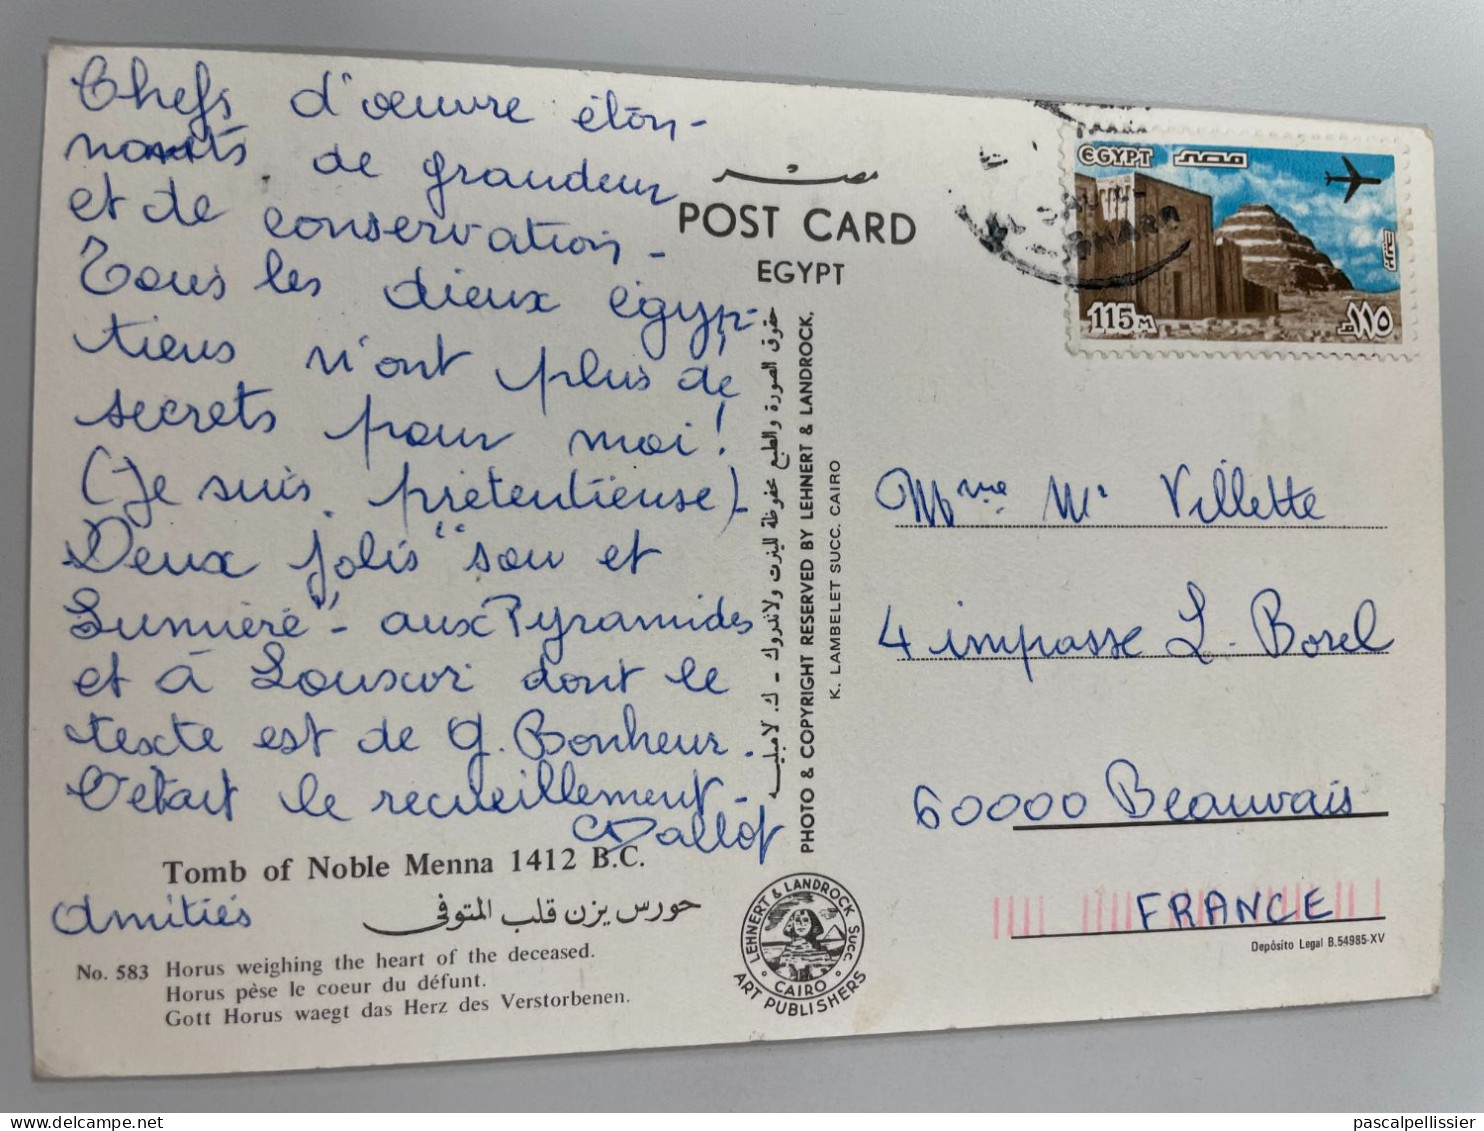 Chefs d'oeuvre éton-
nants de grandeur
et de conservation -
Tous les dieux égyp-
tiens n'ont plus de
secrets pour moi!
(Je suis prétentieuse)-
Deux jolis "son et
Lumière" - aux Pyramides
et à Louxor dont le
texte est de G. Bonheur.
C'était le recueillement -
Dallot
Amitiés
Tomb of Noble Menna 1412 B.C.
حورس يزن قلب المتوفى
No. 583 Horus weighing the heart of the deceased.
Horus pèse le coeur du défunt.
Gott Horus waegt das Herz des Verstorbenen.
مصر
POST CARD
EGYPT
حقوق الصورة والطبع محفوظة للينرت ولاندروك - ك. لامبليه
PHOTO & COPYRIGHT RESERVED BY LEHNERT & LANDROCK,
K. LAMBELET SUCC. CAIRO
LEHNERT & LANDROCK SUCC.
CAIRO
ART PUBLISHERS
EGYPT مصر
115 M ١١٥ م
Mme M. Villette
4 impasse L. Borel
60000 Beauvais
FRANCE
Depósito Legal B.54985-XV
pascalpellissier